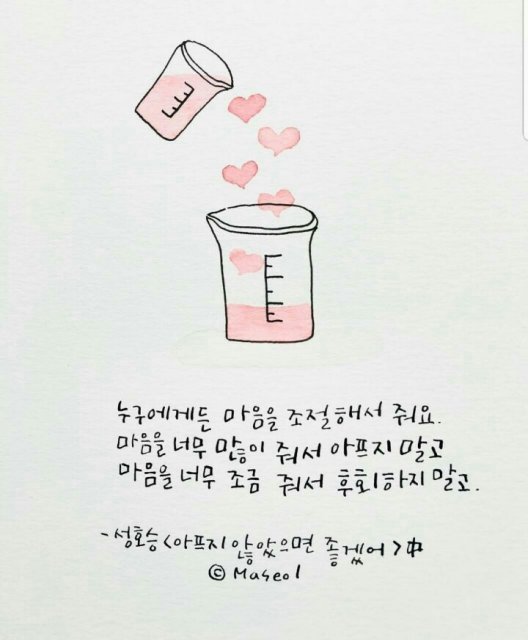 누구에게든 마음을 조절해서 줘요.
마음을 너무 많이 줘서 아프지 말고
마음을 너무 조금 줘서 후회하지 말고.
-성호승<아프지 않았으면 좋겠어>中
© Maseol